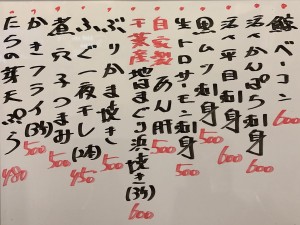 鯨ベーコン 600
活〆かんぱち刺身 600
活〆平目刺身 600
黒ムツ刺身 500
生トロサーモン刺身 500
自家製 あん肝 500
千葉産 地はまぐり浜焼き(3ヶ) 600
ぶりかま焼き 500
ふぐ一夜干し(2本) 450
煮穴子つまみ 500
かきフライ(3ヶ) 500
たらの芽天ぷら 480